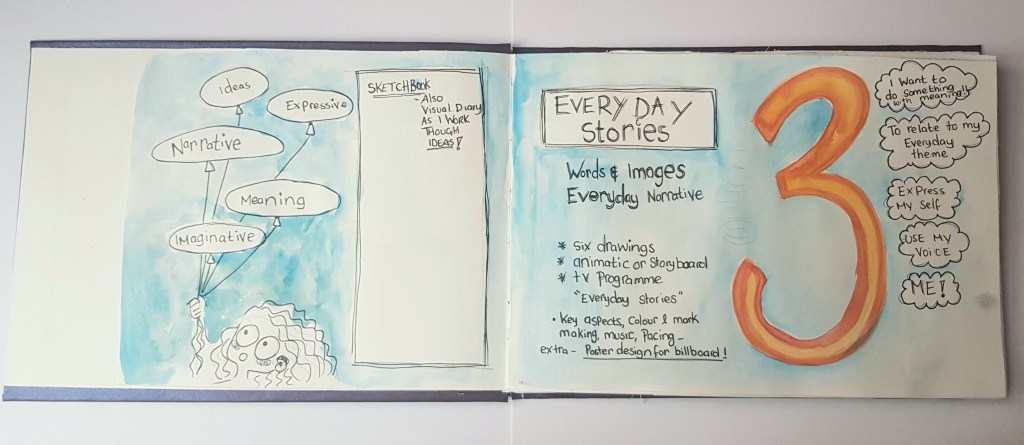 Ideas
Expressive
Narrative
Meaning
Imaginative
SKETCHBOOK
- Also
Visual Diary
AS I WORK
THOUGH
IDEAS!
EVERYDAY
Stories
Words & Images
Everyday Narrative
* six drawings
* animatic or Storyboard
* tv programme
"Everyday stories"
• Key aspects, Colour & mark
making, music, Pacing -
extra - Poster design for billboard!
3
I Want to
do Something
with meaning!!
To relate to my
Everyday
theme
Express
My Self
USE MY
VOICE
ME!